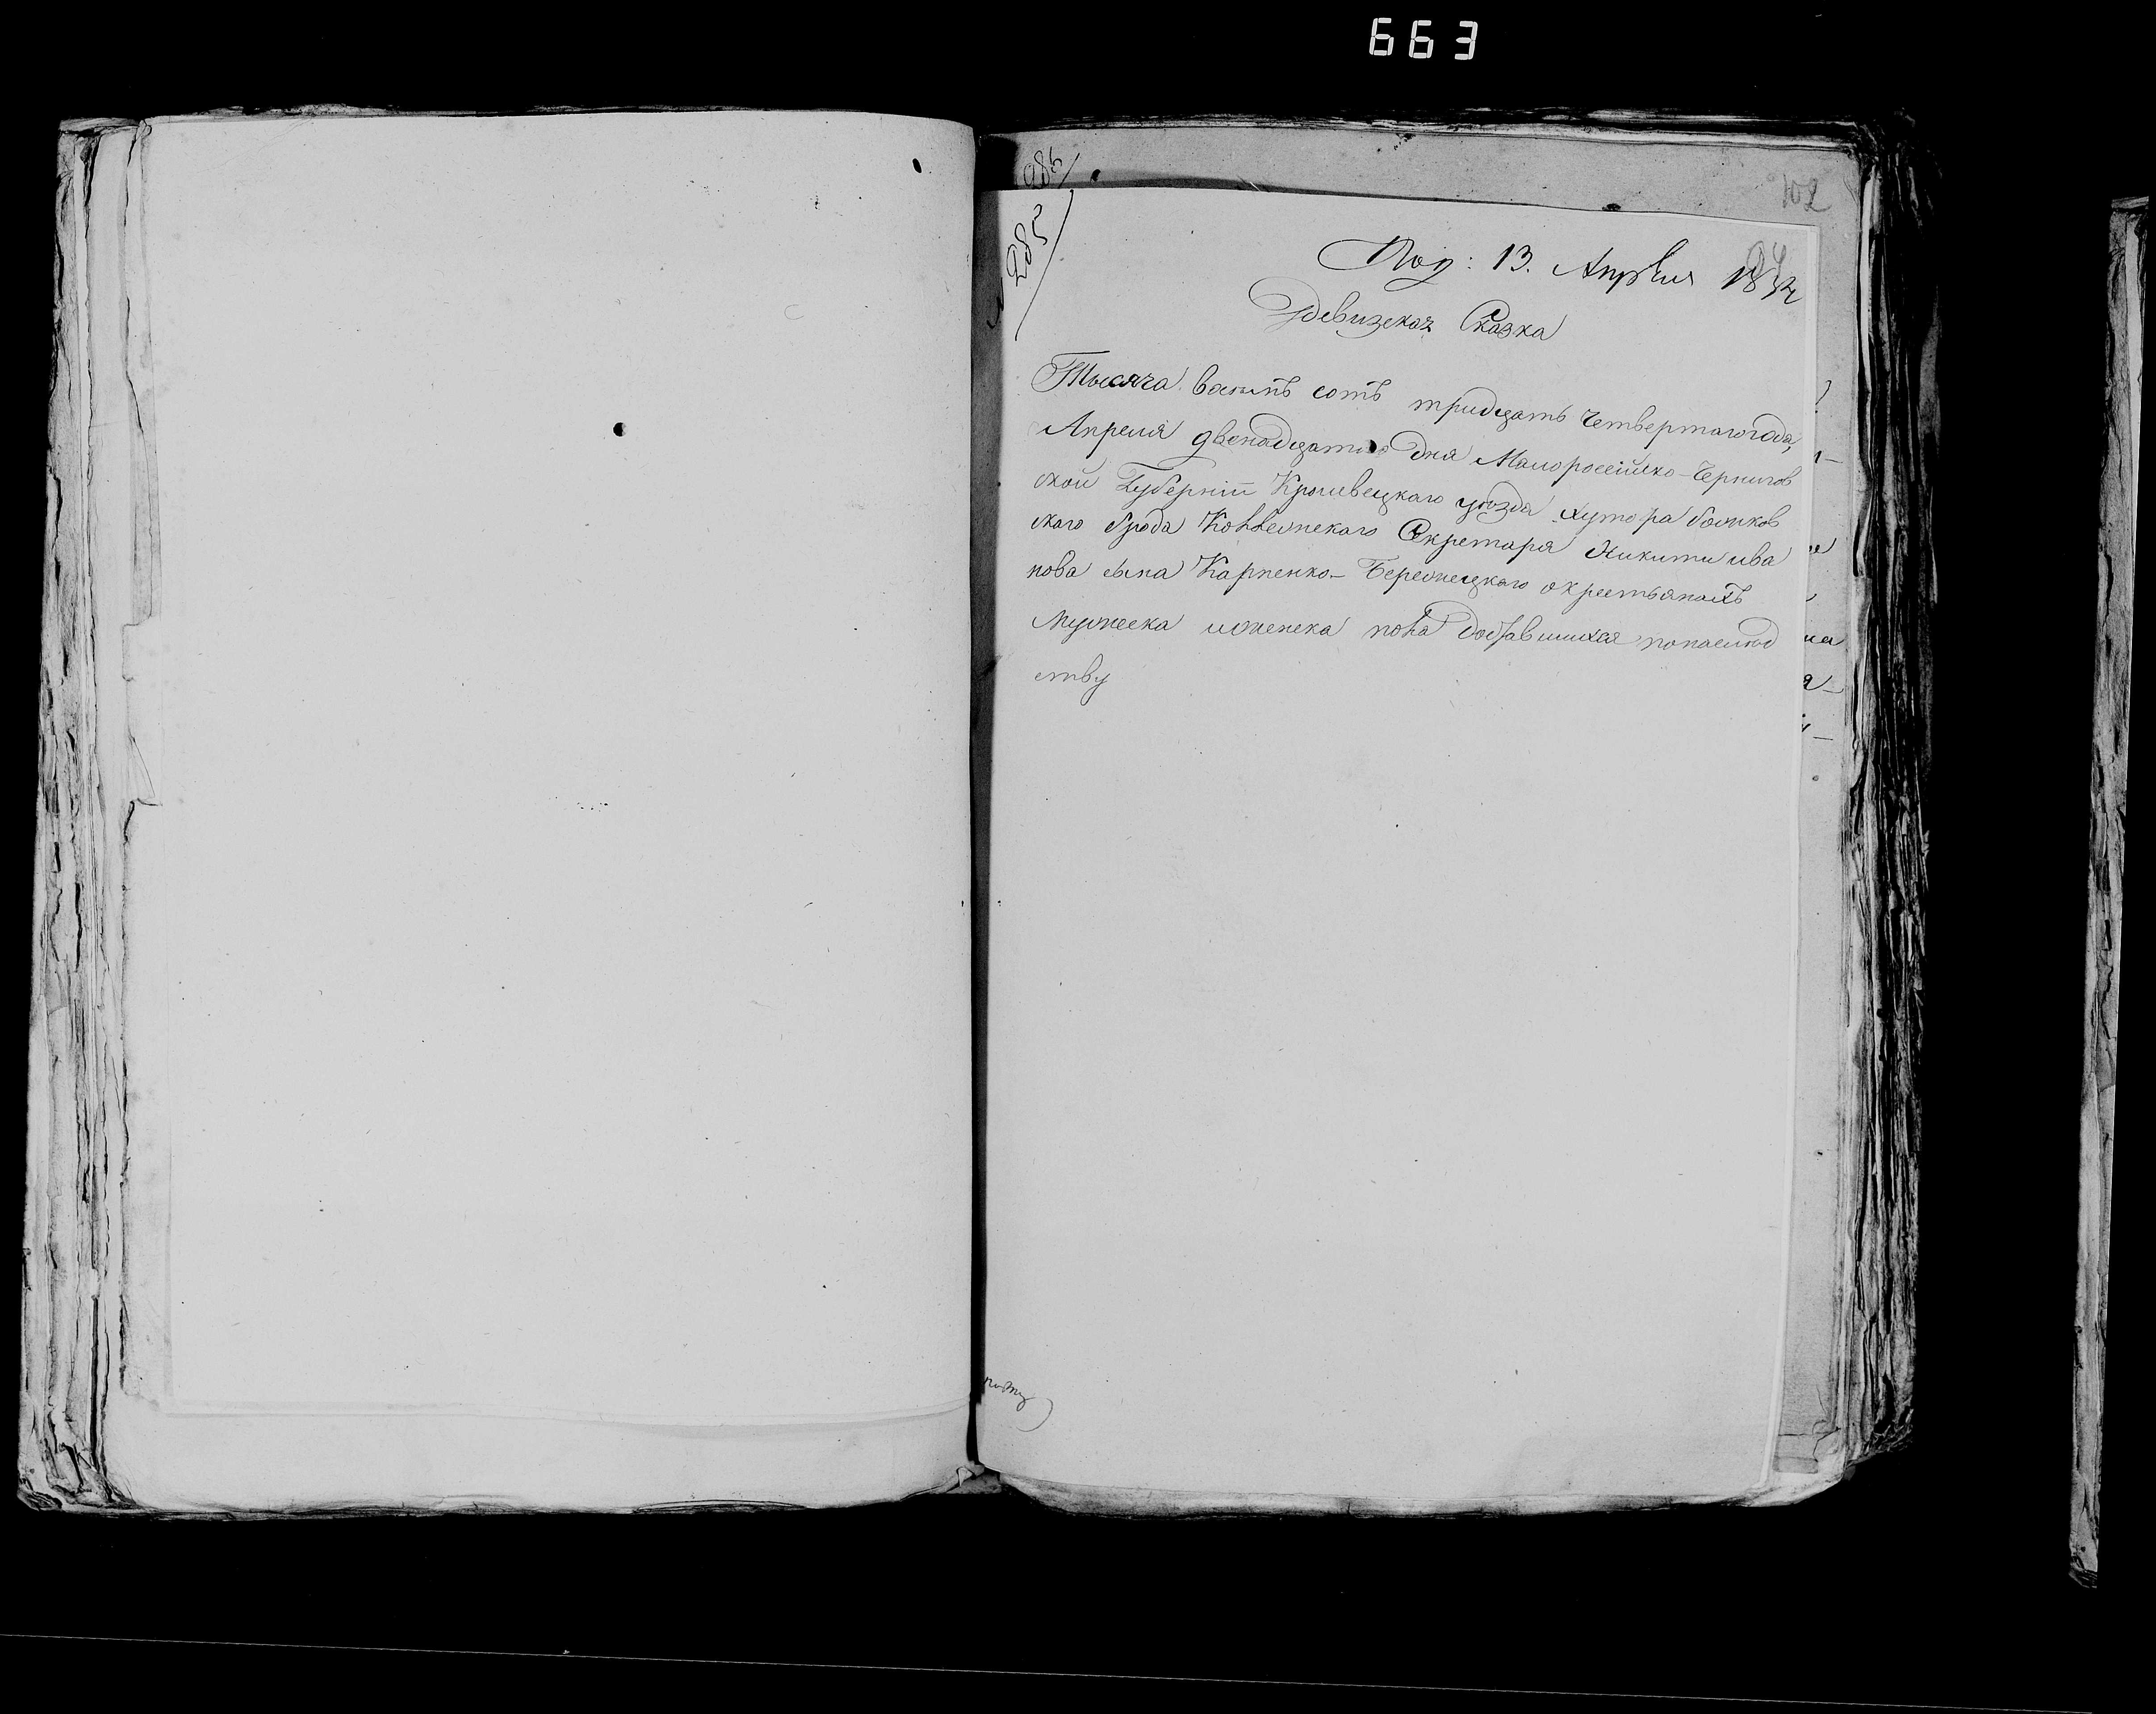 663
102
285
№ 285
94
Под: 13. Апрѣля 1834
Ревизская Сказка
Тысяча васимъ сотъ тридцать четвертаго года,
Апреля двенадцатаго дня Малороссійско-Чернигов
ской Губерніи Кролевецкаго уѣзда хутора
скаго брода Коллежскаго Секретаря Никити ива
нова сына Карпенко- Бережецкаго о крестьянахъ
мужеска и женска пола доставшихся по наслѣд
ству